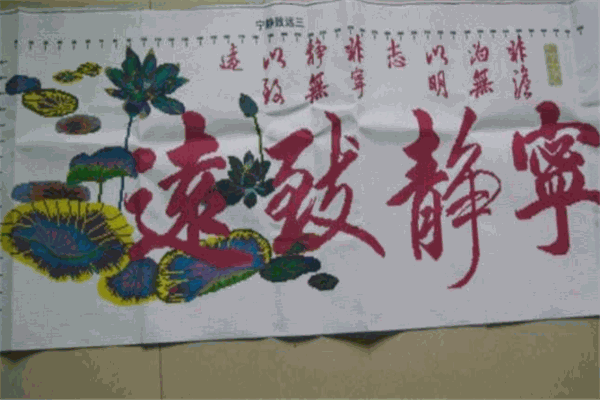 宁静致远三
非澹
泊無
以明
志
非寧
静無
以致
遠
寧静致遠